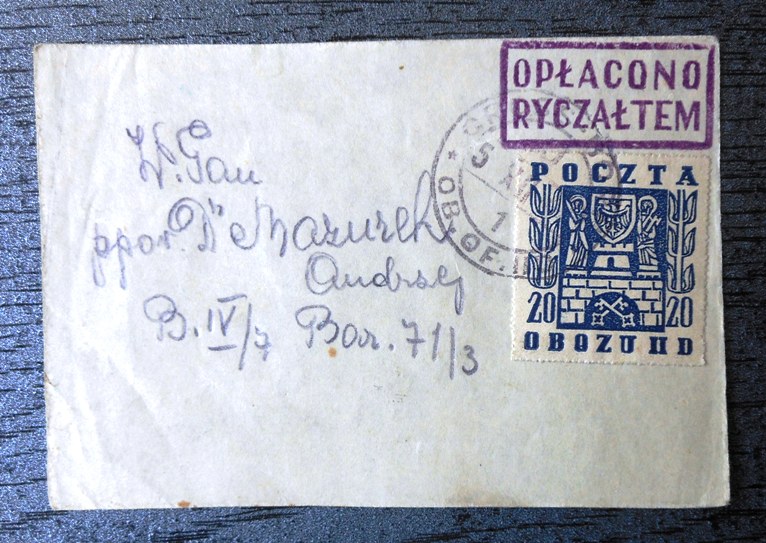 OPŁACONO
RYCZAŁTEM
POCZTA
20 20
OBOZU IID
5 XII
1
* OB. OF. II
W. Pan
ppor. Dr Mazurek
Andrzej
B. IV/7 Bar. 71/3